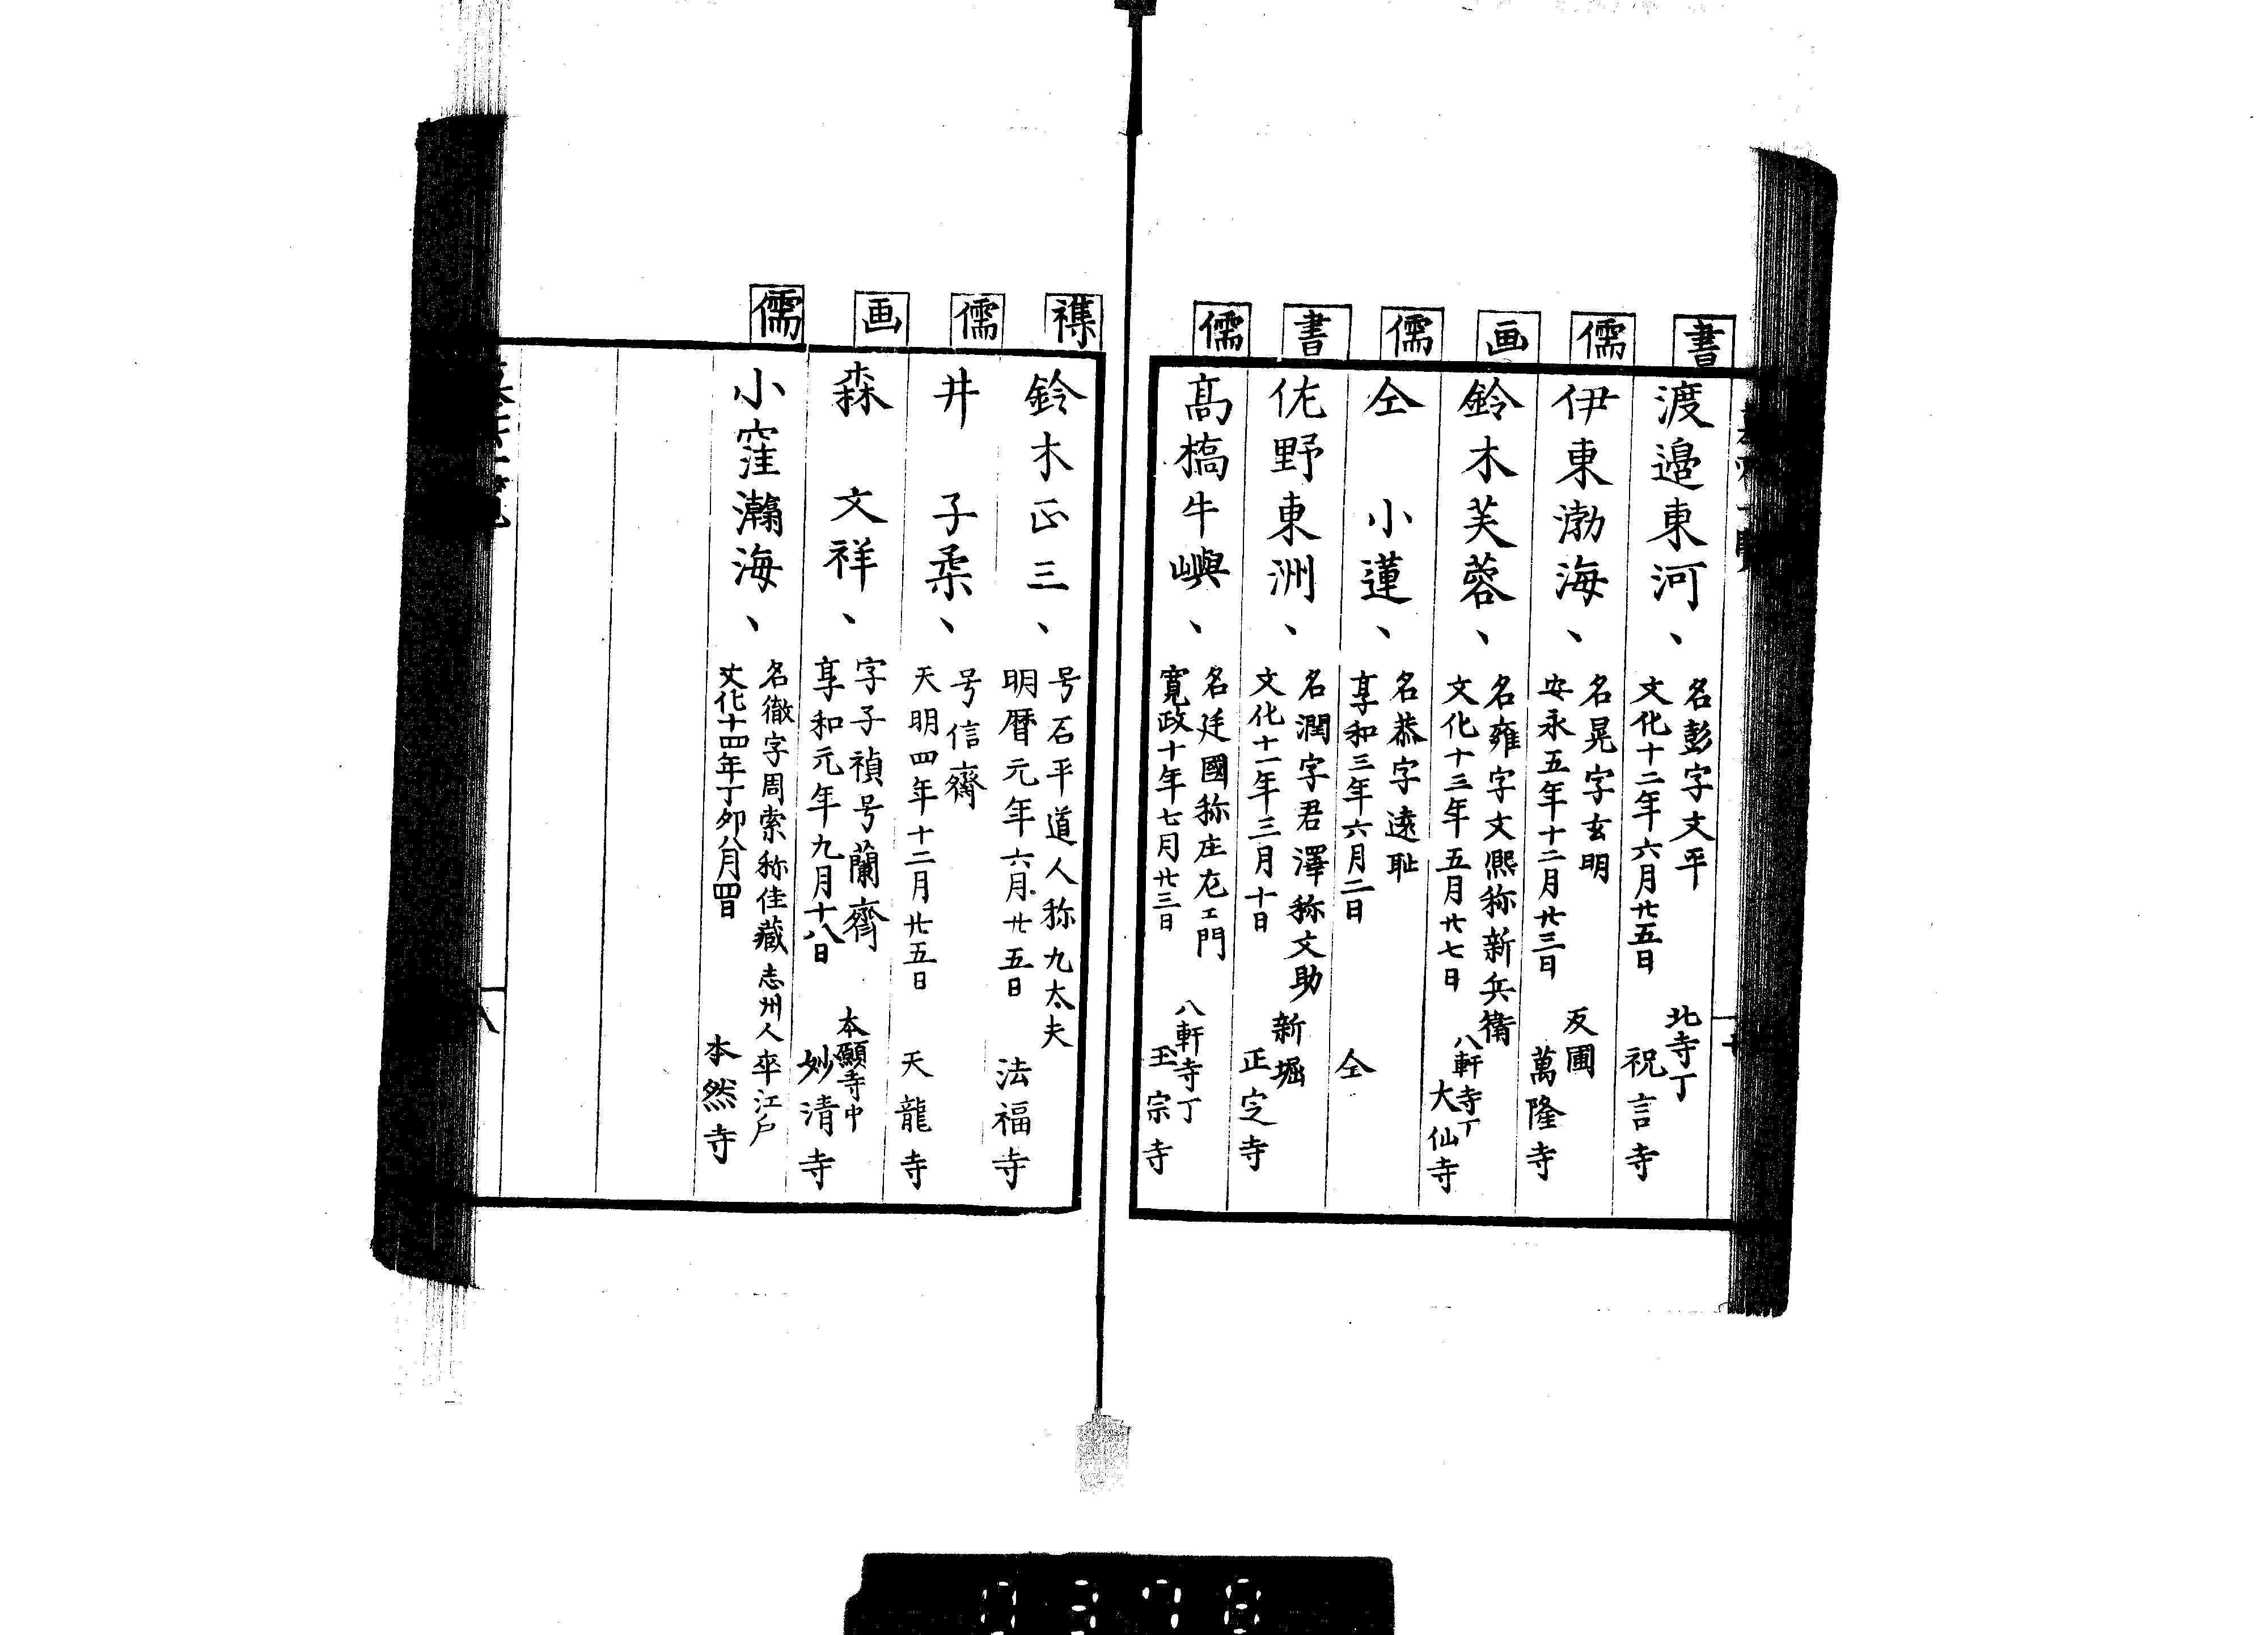 書
渡邉東河、
名彭字文平
文化十二年六月廿五日
北寺丁
祝言寺
儒
伊東渤海、
名晃字玄明
安永五年十二月廿三日
反圃
萬隆寺
画
鈴木芙蓉、
名雍字文熈称新兵衛
文化十三年五月廿七日
八軒寺丁
大仙寺
儒
仝 小蓮、
名恭字遠耻
享和三年六月二日
仝
書
佐野東洲、
名潤字君澤称文助
文化十一年三月十日
新堀
正定寺
儒
髙橋牛嶼、
名廷國称庄左エ門
寛政十年七月廿三日
八軒寺丁
玉宗寺
襍
鈴木正三、
号石平道人称九太夫
明暦元年六月廿五日
法福寺
儒
井 子柔、
号信齋
天明四年十二月廿五日
天龍寺
画
森 文祥、
字子禎号蘭齋
享和元年九月十八日
本願寺中
妙清寺
儒
小窪瀚海、
名徹字周索称佳藏志州人卒江戸
文化十四年丁卯八月四日
本然寺
八